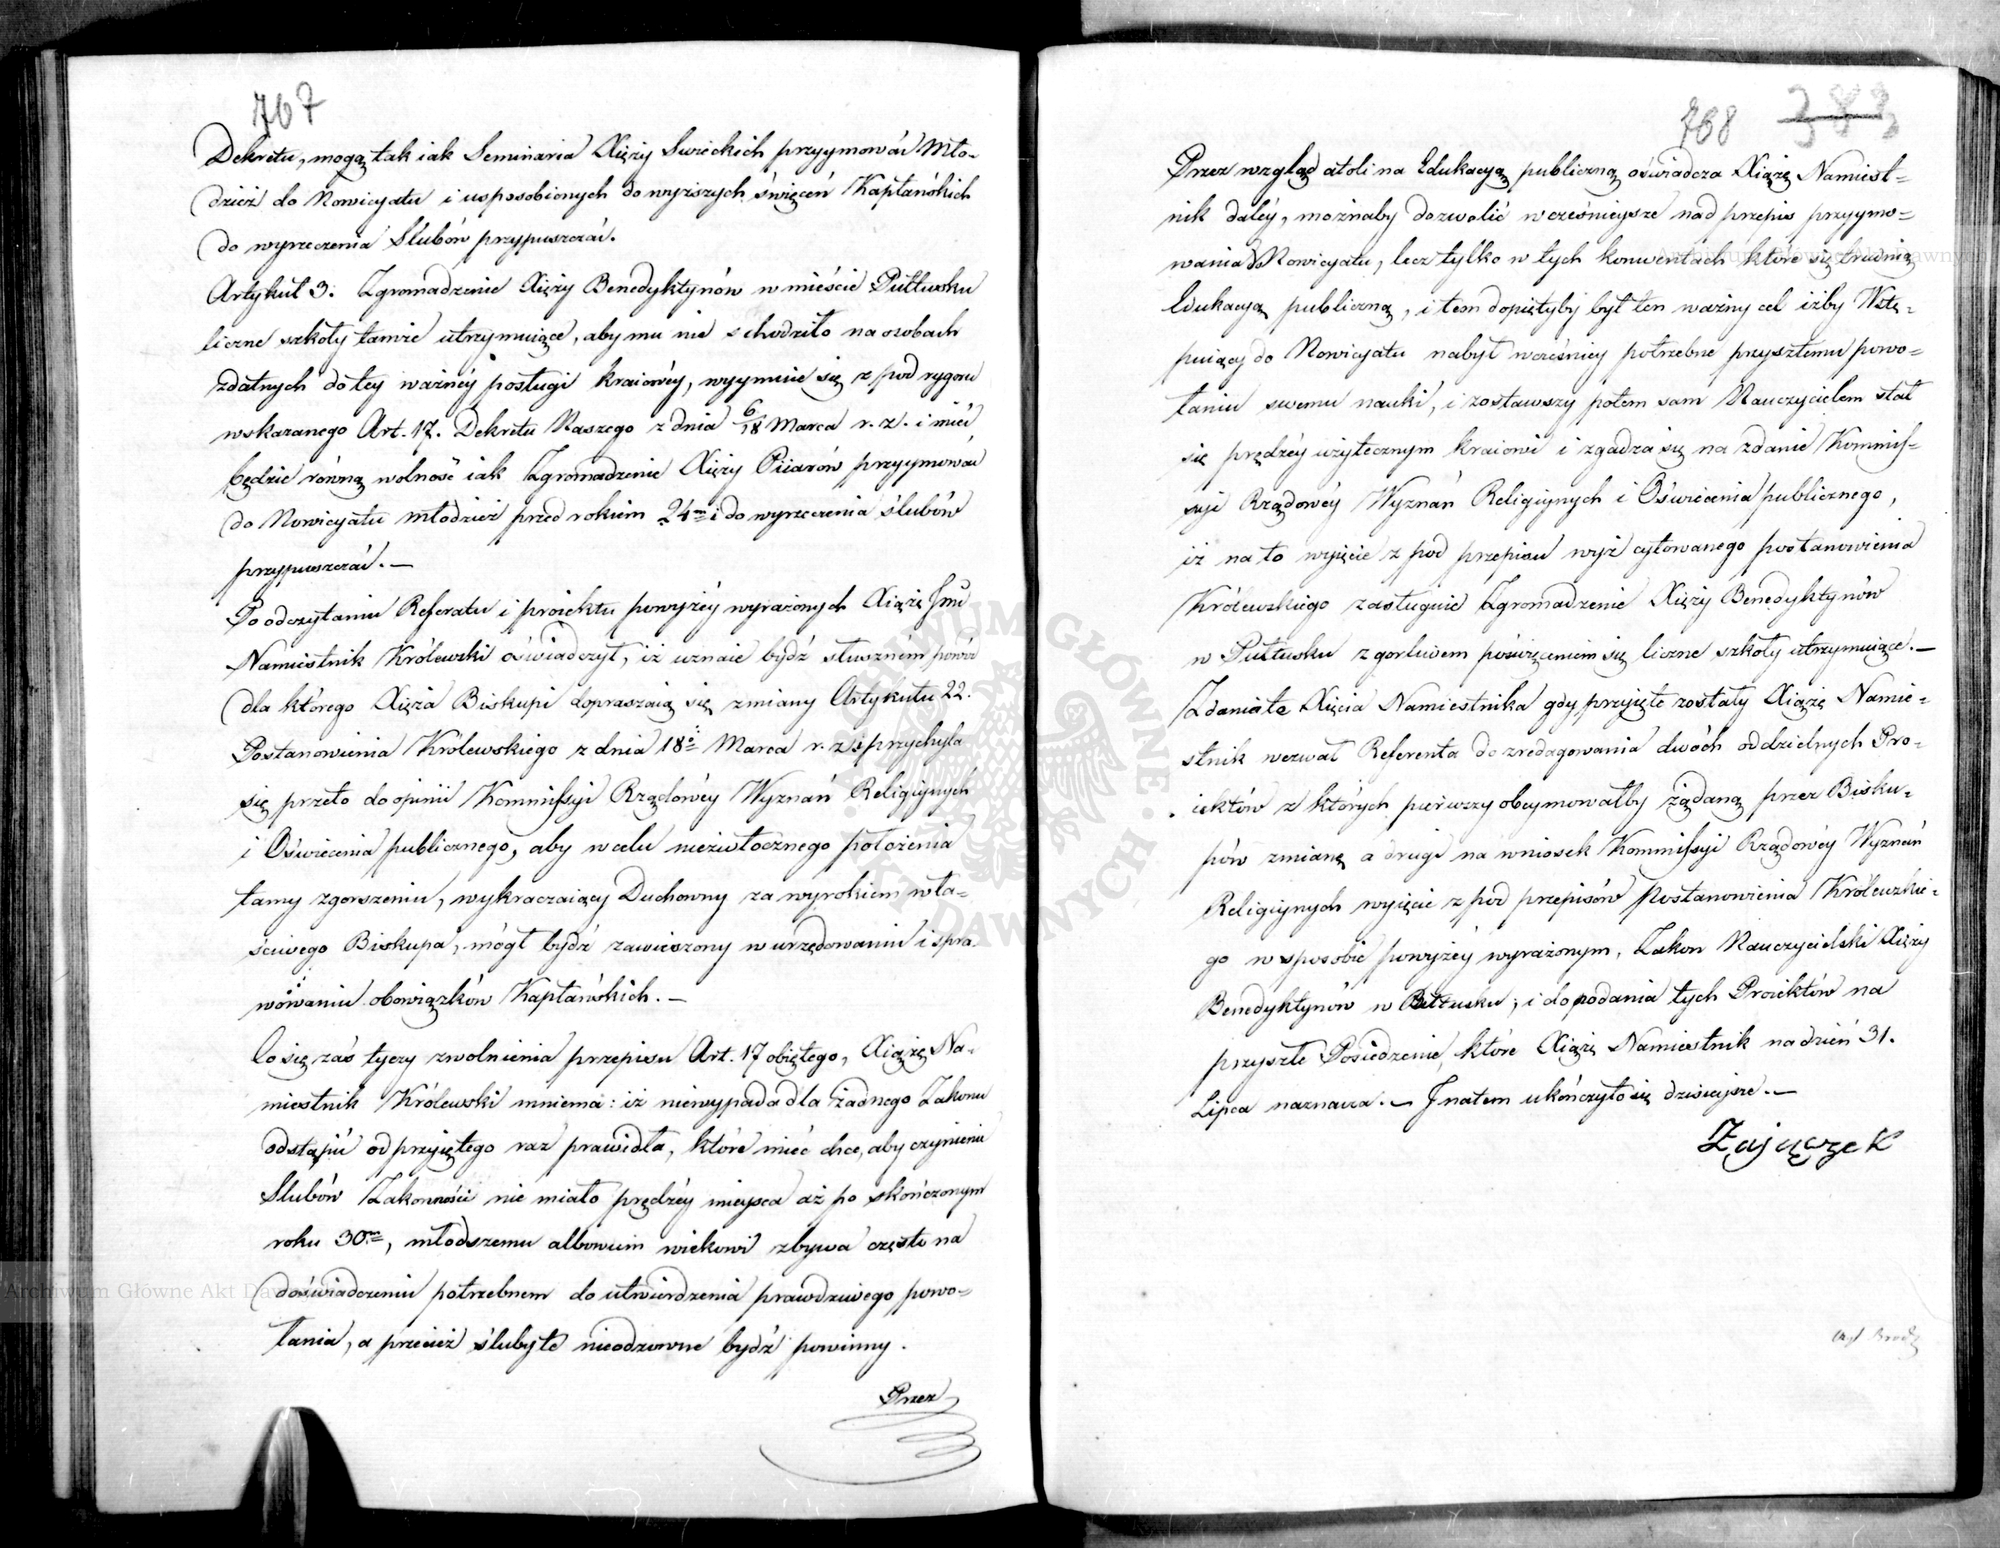 767
Dekretu, mogą tak iak Seminaria Xięży Świeckich przyymować Mło-
dzież do Nowicyatu i usposobionych do wyższych święceń Kapłańskich
do wyrzeczenia Slubów przypuszczać.
Artykuł 3. Zgromadzenie Xięży Benedyktynów w mieście Pułtusku
liczne szkoły tamże utrzymuiące, aby mu nie schodziło na osobach
zdatnych do tey ważnéy posługi kraiowéy, wyymuie się z pod rygoru
wskazanego Art. 17. Dekretu Naszego z dnia 6/18 Marca r. z. i mieć
będzie równą wolność iak Zgromadzenie Xięży Piiarów przyymować
do Nowicyatu młodzież przed rokiem 24m i do wyrzeczenia ślubów
przypuszczać. —
Po odczytaniu Referatu i proiektu powyżéy wyrażonych Xiążę Jmć
Namiestnik Królewski oświadczył, iż uznaie bydź słuszném powód
dla którego Xięża Biskupi dopraszaią się zmiany Artykułu 22.
Postanowienia Królewskiego z dnia 18o Marca r. z. i przychyla
się przeto do opinii Kommissyi Rządowéy Wyznań Religiynych
i Oświecenia publicznego, aby w celu niezwłocznego położenia
tamy zgorszeniu, wykraczaiący Duchowny za wyrokiem wła-
ściwego Biskupa, mógł bydź zawieszony w urzędowaniu i spra
wowaniu obowiązków Kapłańskich. —
Co się zaś tyczy zwolnienia przepisu Art. 17 obiętego, Xiążę Na-
miestnik Królewski mniema: iż niewypada dla żadnego Zakonu
odstąpić od przyiętego raz prawidła, które mieć chce, aby czynienie
Slubów Zakonności nie miało prędzéy mieysca aż po skończonym
roku 30m, młodszemu albowiem wiekowi zbywa często na
doświadczeniu potrzebnem do utwierdzenia prawdziwego powo-
łania, a przecież śluby te nieodzowne bydź powinny.
Przez
768 383
Przez wzgląd atoli na Edukacyą publiczną oświadcza Xiążę Namiest-
nik daléy, możnaby dozwolić wcześnieysze nad przepis przyymo-
wania do Nowicyatu, lecz tylko w tych konwentach które się trudnią
Edukacyą publiczną, i tem dopiętyby był ten ważny cel iżby Wstę-
puiący do Nowicyatu nabył wcześniey potrzebne przyszłemu powo-
łaniu swemu nauki, i zostawszy potem sam Nauczycielem stał
się prędzéy użytecznym kraiowi i zgadza się na zdanie Kommis-
syi Rządowéy Wyznań Religiynych i Oświecenia publicznego,
iż na to wyięcie z pod przepisu wyż cytowanego postanowienia
Królewskiego zasługuie Zgromadzenie Xięży Benedyktynów
w Pułtusku z gorliwem poświęceniem się liczne szkoły utrzymuiące. —
Zdania te Xięcia Namiestnika gdy przyięte zostały Xiążę Namie-
stnik wezwał Referenta do zredagowania dwóch oddzielnych Pro-
iektów z których pierwszy obeymowałby żądaną przez Bisku-
pów zmianę a drugi na wniosek Kommissyi Rządowéy Wyznań
Religiynych wyięcie z pod przepisów Postanowienia Królewskie-
go w sposobie powyżéy wyrażonym, Zakon Nauczycielski Xięży
Benedyktynów w Pułtusku; i do podania tych Proiektów na
przyszłe Posiedzenie, które Xiążę Namiestnik na dzień 31.
Lipca naznacza. — I na tem ukończyło się dzisieysze. —
Zajączek
Archiwum Główne Akt Dawnych
ARCHIWUM GŁÓWNE AKT DAWNYCH